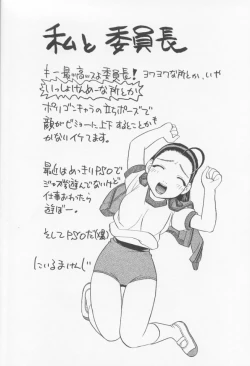 私と委員長
キー最高っスよ委員長! ヨワヨワな所とか、いや
いっしょけんめーな所とか!
ポリゴンキャラの立ちポーズで
顔がビミョーに上下することか
がないイケてます。
最近はめっきりPSOで
遊んでないけど
仕事おわったら
遊ぼー。
そしてPSOだ(爆)
にいるまけんじ